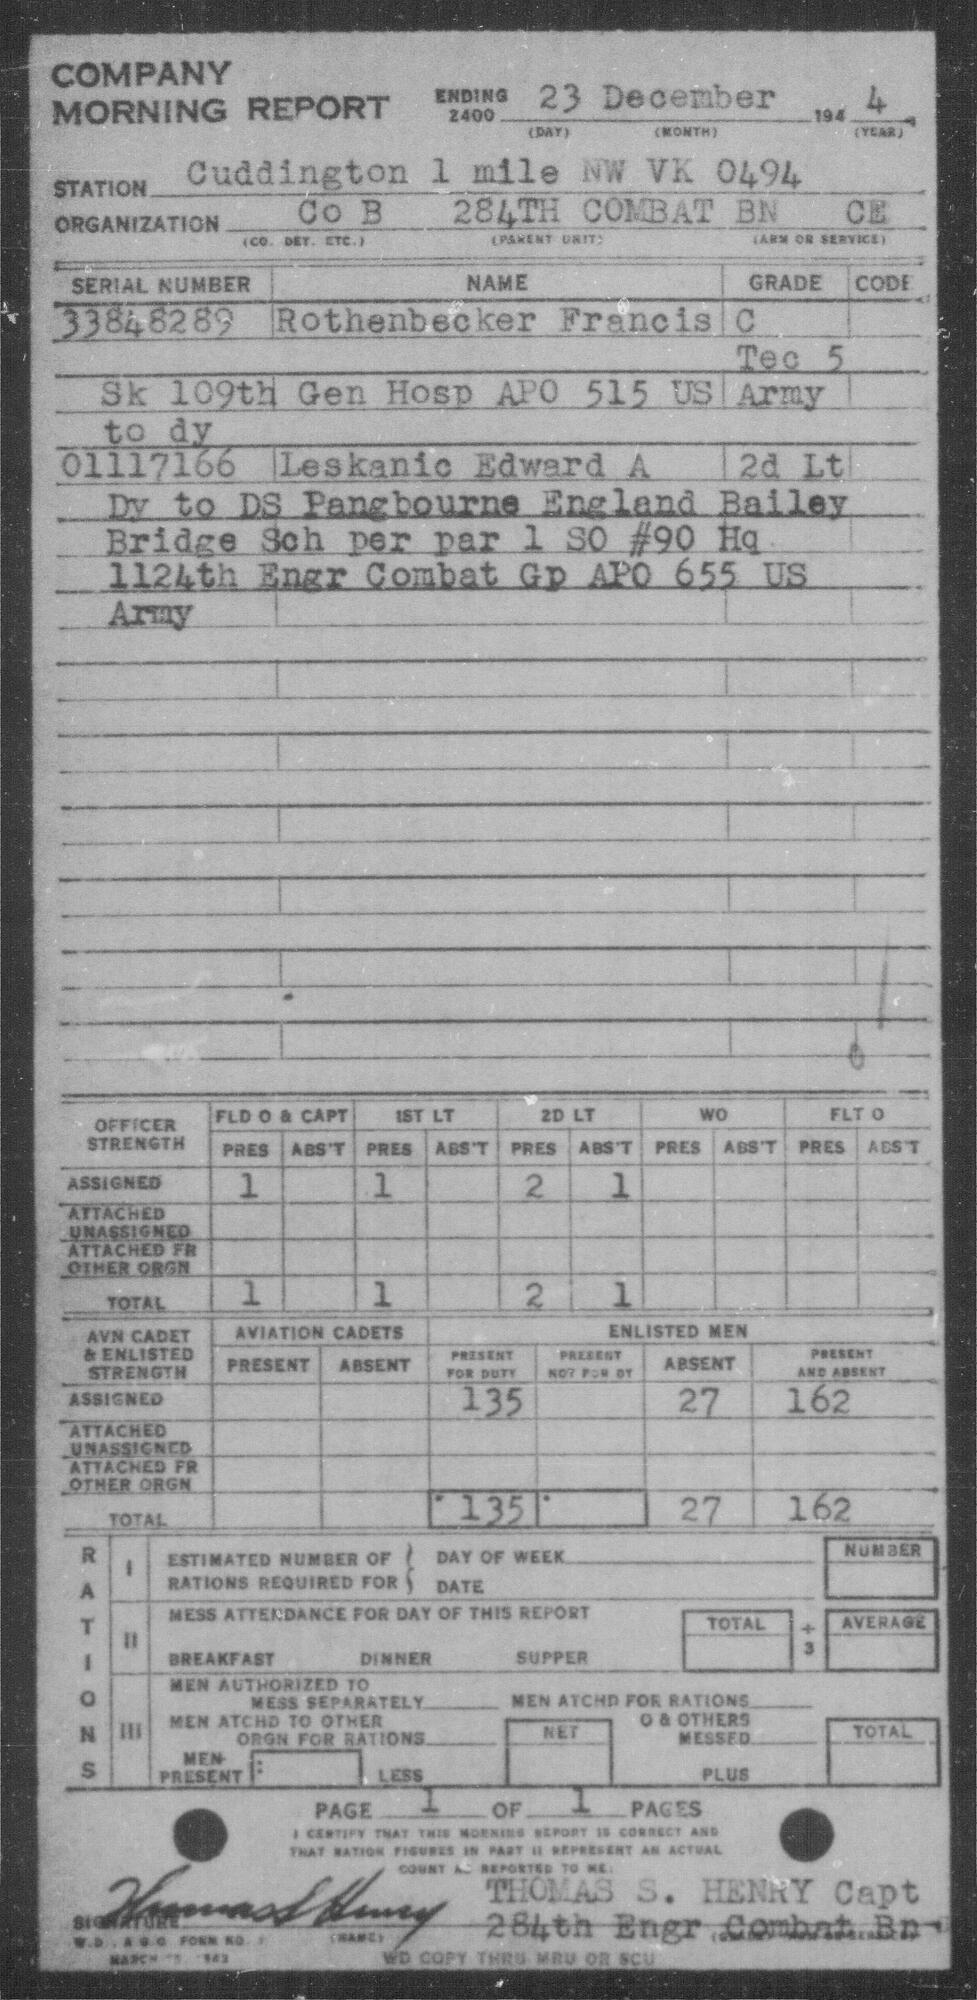 COMPANY
MORNING REPORT ENDING 2400 23 December 194 4
(DAY) (MONTH) (YEAR)
STATION Cuddington 1 mile NW VK 0494
ORGANIZATION Co B 284TH COMBAT BN CE
(CO. DET. ETC.) (PARENT UNIT) (ARM OR SERVICE)
SERIAL NUMBER NAME GRADE CODE
33848289 Rothenbecker Francis C
Tec 5
Sk 109th Gen Hosp APO 515 US Army
to dy
01117166 Leskanic Edward A 2d Lt
Dy to DS Pangbourne England Bailey
Bridge Sch per par 1 SO #90 Hq
1124th Engr Combat Gp APO 655 US
Army
OFFICER STRENGTH FLD O & CAPT 1ST LT 2D LT WO FLT O
PRES ABS'T PRES ABS'T PRES ABS'T PRES ABS'T PRES ABS'T
ASSIGNED 1 1 2 1
ATTACHED UNASSIGNED
ATTACHED FR OTHER ORGN
TOTAL 1 1 2 1
AVN CADET & ENLISTED STRENGTH AVIATION CADETS ENLISTED MEN
PRESENT ABSENT PRESENT FOR DUTY PRESENT NOT FOR DY ABSENT PRESENT AND ABSENT
ASSIGNED 135 27 162
ATTACHED UNASSIGNED
ATTACHED FR OTHER ORGN
TOTAL 135 27 162
RATIONS
I ESTIMATED NUMBER OF RATIONS REQUIRED FOR DAY OF WEEK DATE NUMBER
II MESS ATTENDANCE FOR DAY OF THIS REPORT TOTAL ÷ 3 AVERAGE
BREAKFAST DINNER SUPPER
III MEN AUTHORIZED TO MESS SEPARATELY MEN ATCHD FOR RATIONS
MEN ATCHD TO OTHER ORGN FOR RATIONS NET O & OTHERS MESSED TOTAL
MEN PRESENT LESS PLUS
PAGE 1 OF 1 PAGES
I CERTIFY THAT THIS MORNING REPORT IS CORRECT AND
THAT RATION FIGURES IN PART II REPRESENT AN ACTUAL
COUNT AS REPORTED TO ME:
Thomas S Henry THOMAS S. HENRY Capt
SIGNATURE 284th Engr Combat Bn
W.D., A.G.O. FORM NO. 1 (NAME)
MARCH
WD COPY THRU MRU OR SCU